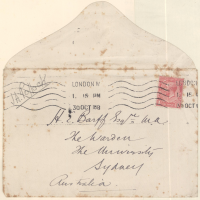 LONDON W
1. 15 PM
30 OCT
H. E. Barff Esqre M.A
The Warden
The University
Sydney
Australia